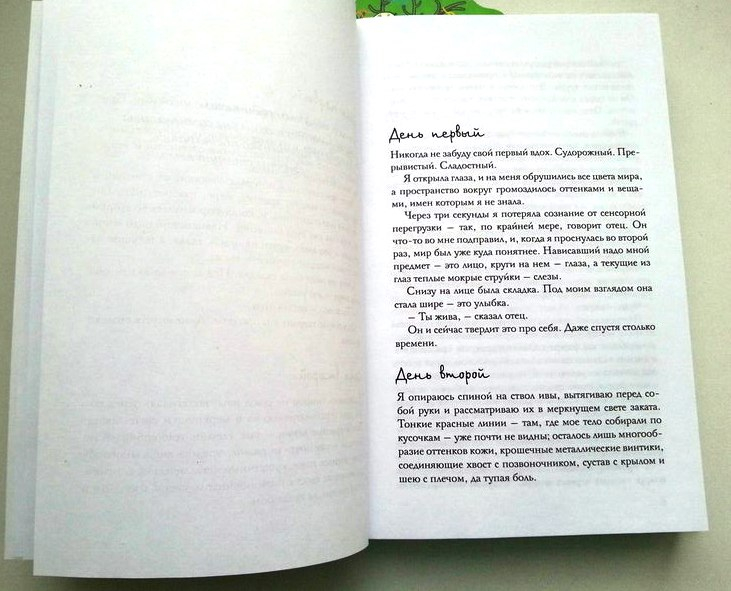 День первый
Никогда не забуду свой первый вдох. Судорожный. Пре-
рывистый. Сладостный.
Я открыла глаза, и на меня обрушились все цвета мира,
а пространство вокруг громоздилось оттенками и веща-
ми, имен которым я не знала.
Через три секунды я потеряла сознание от сенсорной
перегрузки — так, по крайней мере, говорит отец. Он
что-то во мне подправил, и, когда я проснулась во второй
раз, мир был уже куда понятнее. Нависавший надо мной
предмет — это лицо, круги на нем — глаза, а текущие из
глаз теплые мокрые струйки — слезы.
Снизу на лице была складка. Под моим взглядом она
стала шире — это улыбка.
— Ты жива, — сказал отец.
Он и сейчас твердит это про себя. Даже спустя столько
времени.
День второй
Я опираюсь спиной на ствол ивы, вытягиваю перед со-
бой руки и рассматриваю их в меркнущем свете заката.
Тонкие красные линии — там, где мое тело собирали по
кусочкам — уже почти не видны; осталось лишь многооб-
разие оттенков кожи, крошечные металлические винтики,
соединяющие хвост с позвоночником, сустав с крылом и
шею с плечом, да тупая боль.